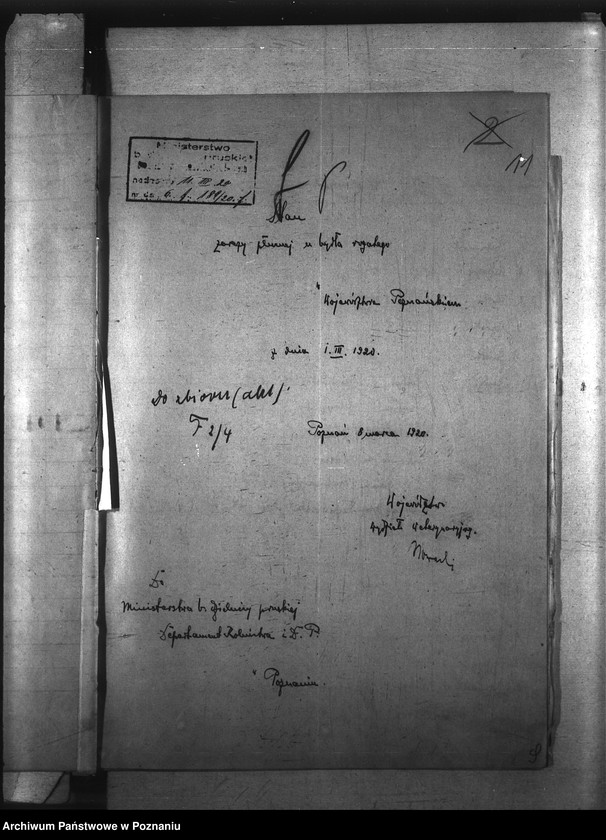 2
11
Ministerstwo
b.
nadeszło 11. III 20
Stan
zarazy płucnej u bydła rogatego
w Województwie Poznańskiem
z dnia 1. III. 1920.
Do zbioru (akt)
F 2/4
Poznań 8 marca 1920.
Województwo
wydział weterynaryjny.
Do
Ministerstwa b. dzielnicy pruskiej
Departament Rolnictwa i D. P.
w Poznaniu.
Archiwum Państwowe w Poznaniu